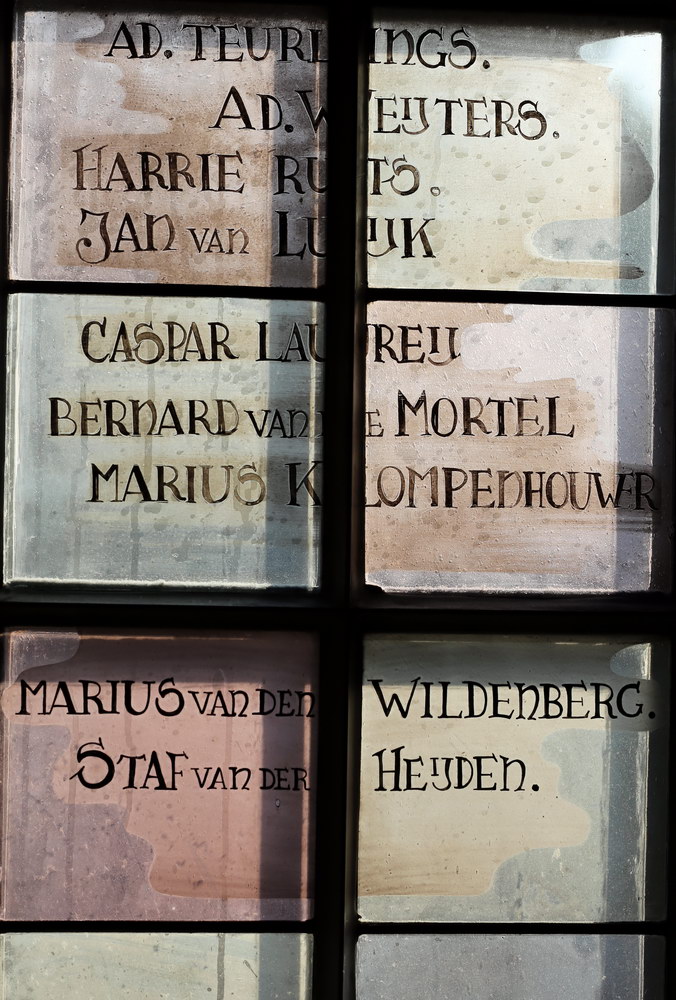 AD. TEURLINGS.
AD. WEIJTERS.
HARRIE RUTS.
JAN VAN LUIJK
CASPAR LAUREIJ
BERNARD VAN DE MORTEL
MARIUS KLOMPENHOUWER
MARIUS VAN DEN WILDENBERG.
STAF VAN DER HEIJDEN.